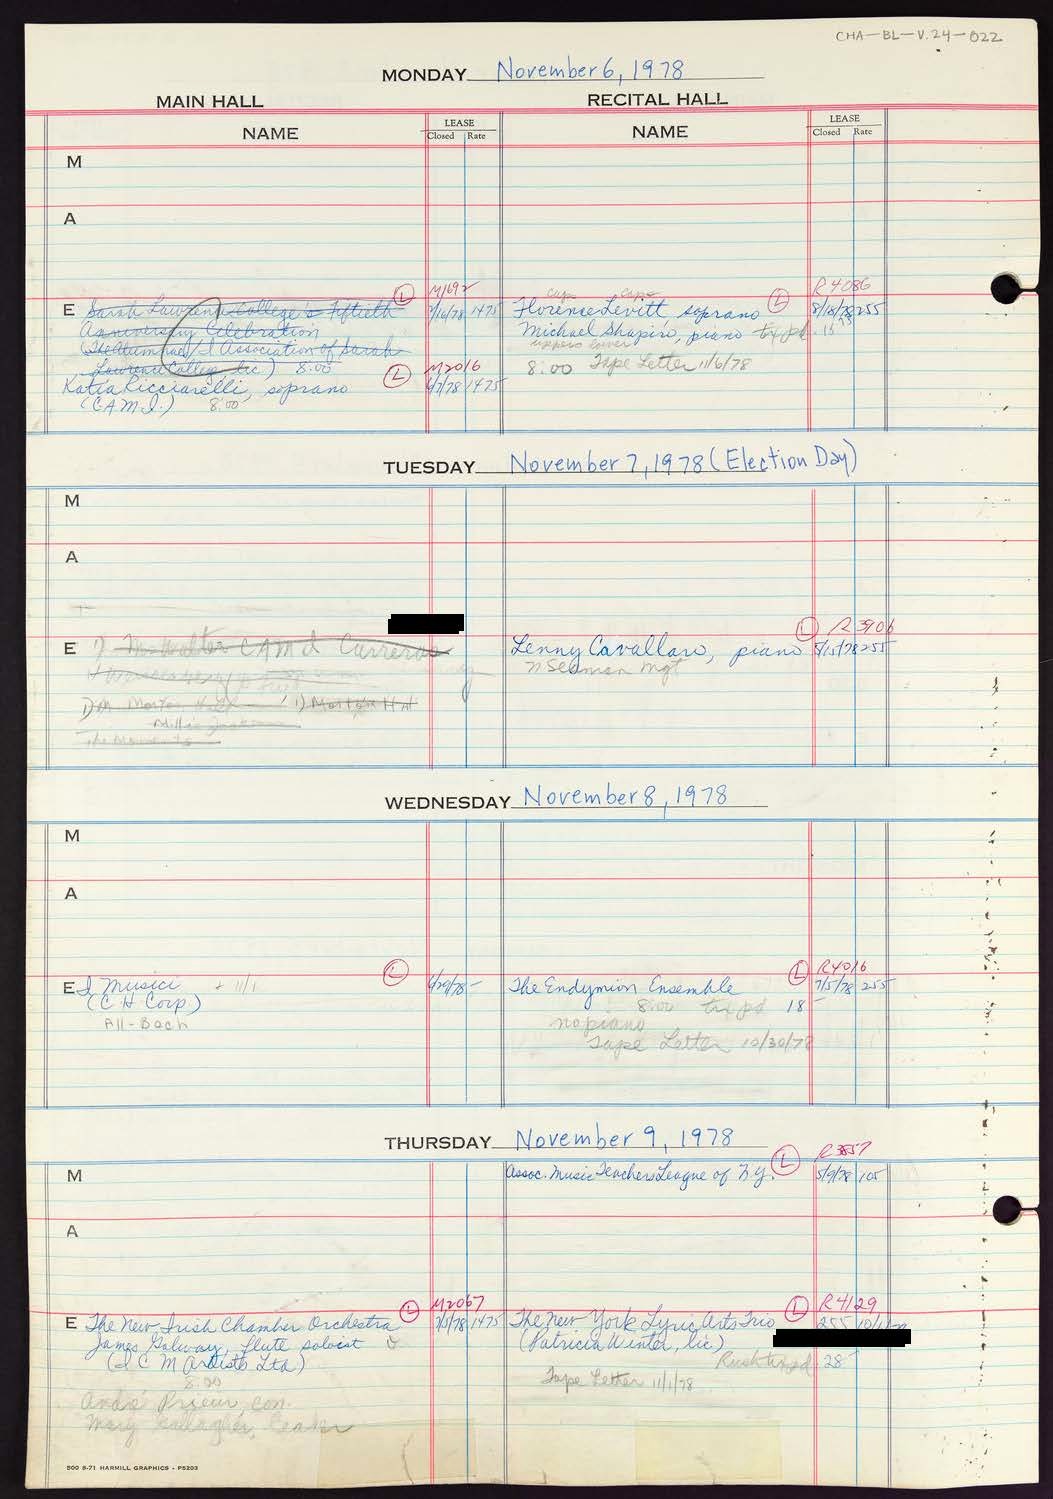 CHA-BL-V.24-022
MONDAY November 6, 1978
MAIN HALL RECITAL HALL
NAME LEASE Closed Rate NAME LEASE Closed Rate
M
A
E Sarah Lawrence College's Fiftieth L M1692 1475
Anniversary Celebration
(The Alumnae/i Association of Sarah
Lawrence College, lic) 8:00
Katia Ricciarelli, soprano L M2016 6/7/78 1475
(CAMI.) 8:00
caps caps
Florence Levitt, soprano L R4086 8/18/78 255
Michael Shapiro, piano tx pd.
uppers lower
8:00 Tape Letter 11/6/78
TUESDAY November 7, 1978 (Election Day)
M
A
E M. Walter CAMI Carreras
1) M. Morton Hall 1) Morton Hall
Millie Jackson
The Moments
Lenny Cavallaro, piano L R3906 5/15/78 255
N Seaman Mgt
WEDNESDAY November 8, 1978
M
A
E I Musici + 11/1 L 6/29/78 -
(C H Corp)
All-Bach
The Endymion Ensemble L R4016 7/5/78 255
8:00 tx pd 18 -
no piano
Tape Letter 10/30/78
THURSDAY November 9, 1978
M Assoc. Music Teachers League of N.Y. L R3857 5/9/78 105
A
E The New Irish Chamber Orchestra L M2067 7/5/78 1475
James Galway, flute soloist
(I C M Artists Ltd)
8:00
André Prieur, con.
Mary Gallagher, leader
The New York Lyric Arts Trio L R4129 255
(Patricia Winter, lic)
Rush tx pd 28 -
Tape Letter 11/1/78
500 8-71 HARMILL GRAPHICS - P5203